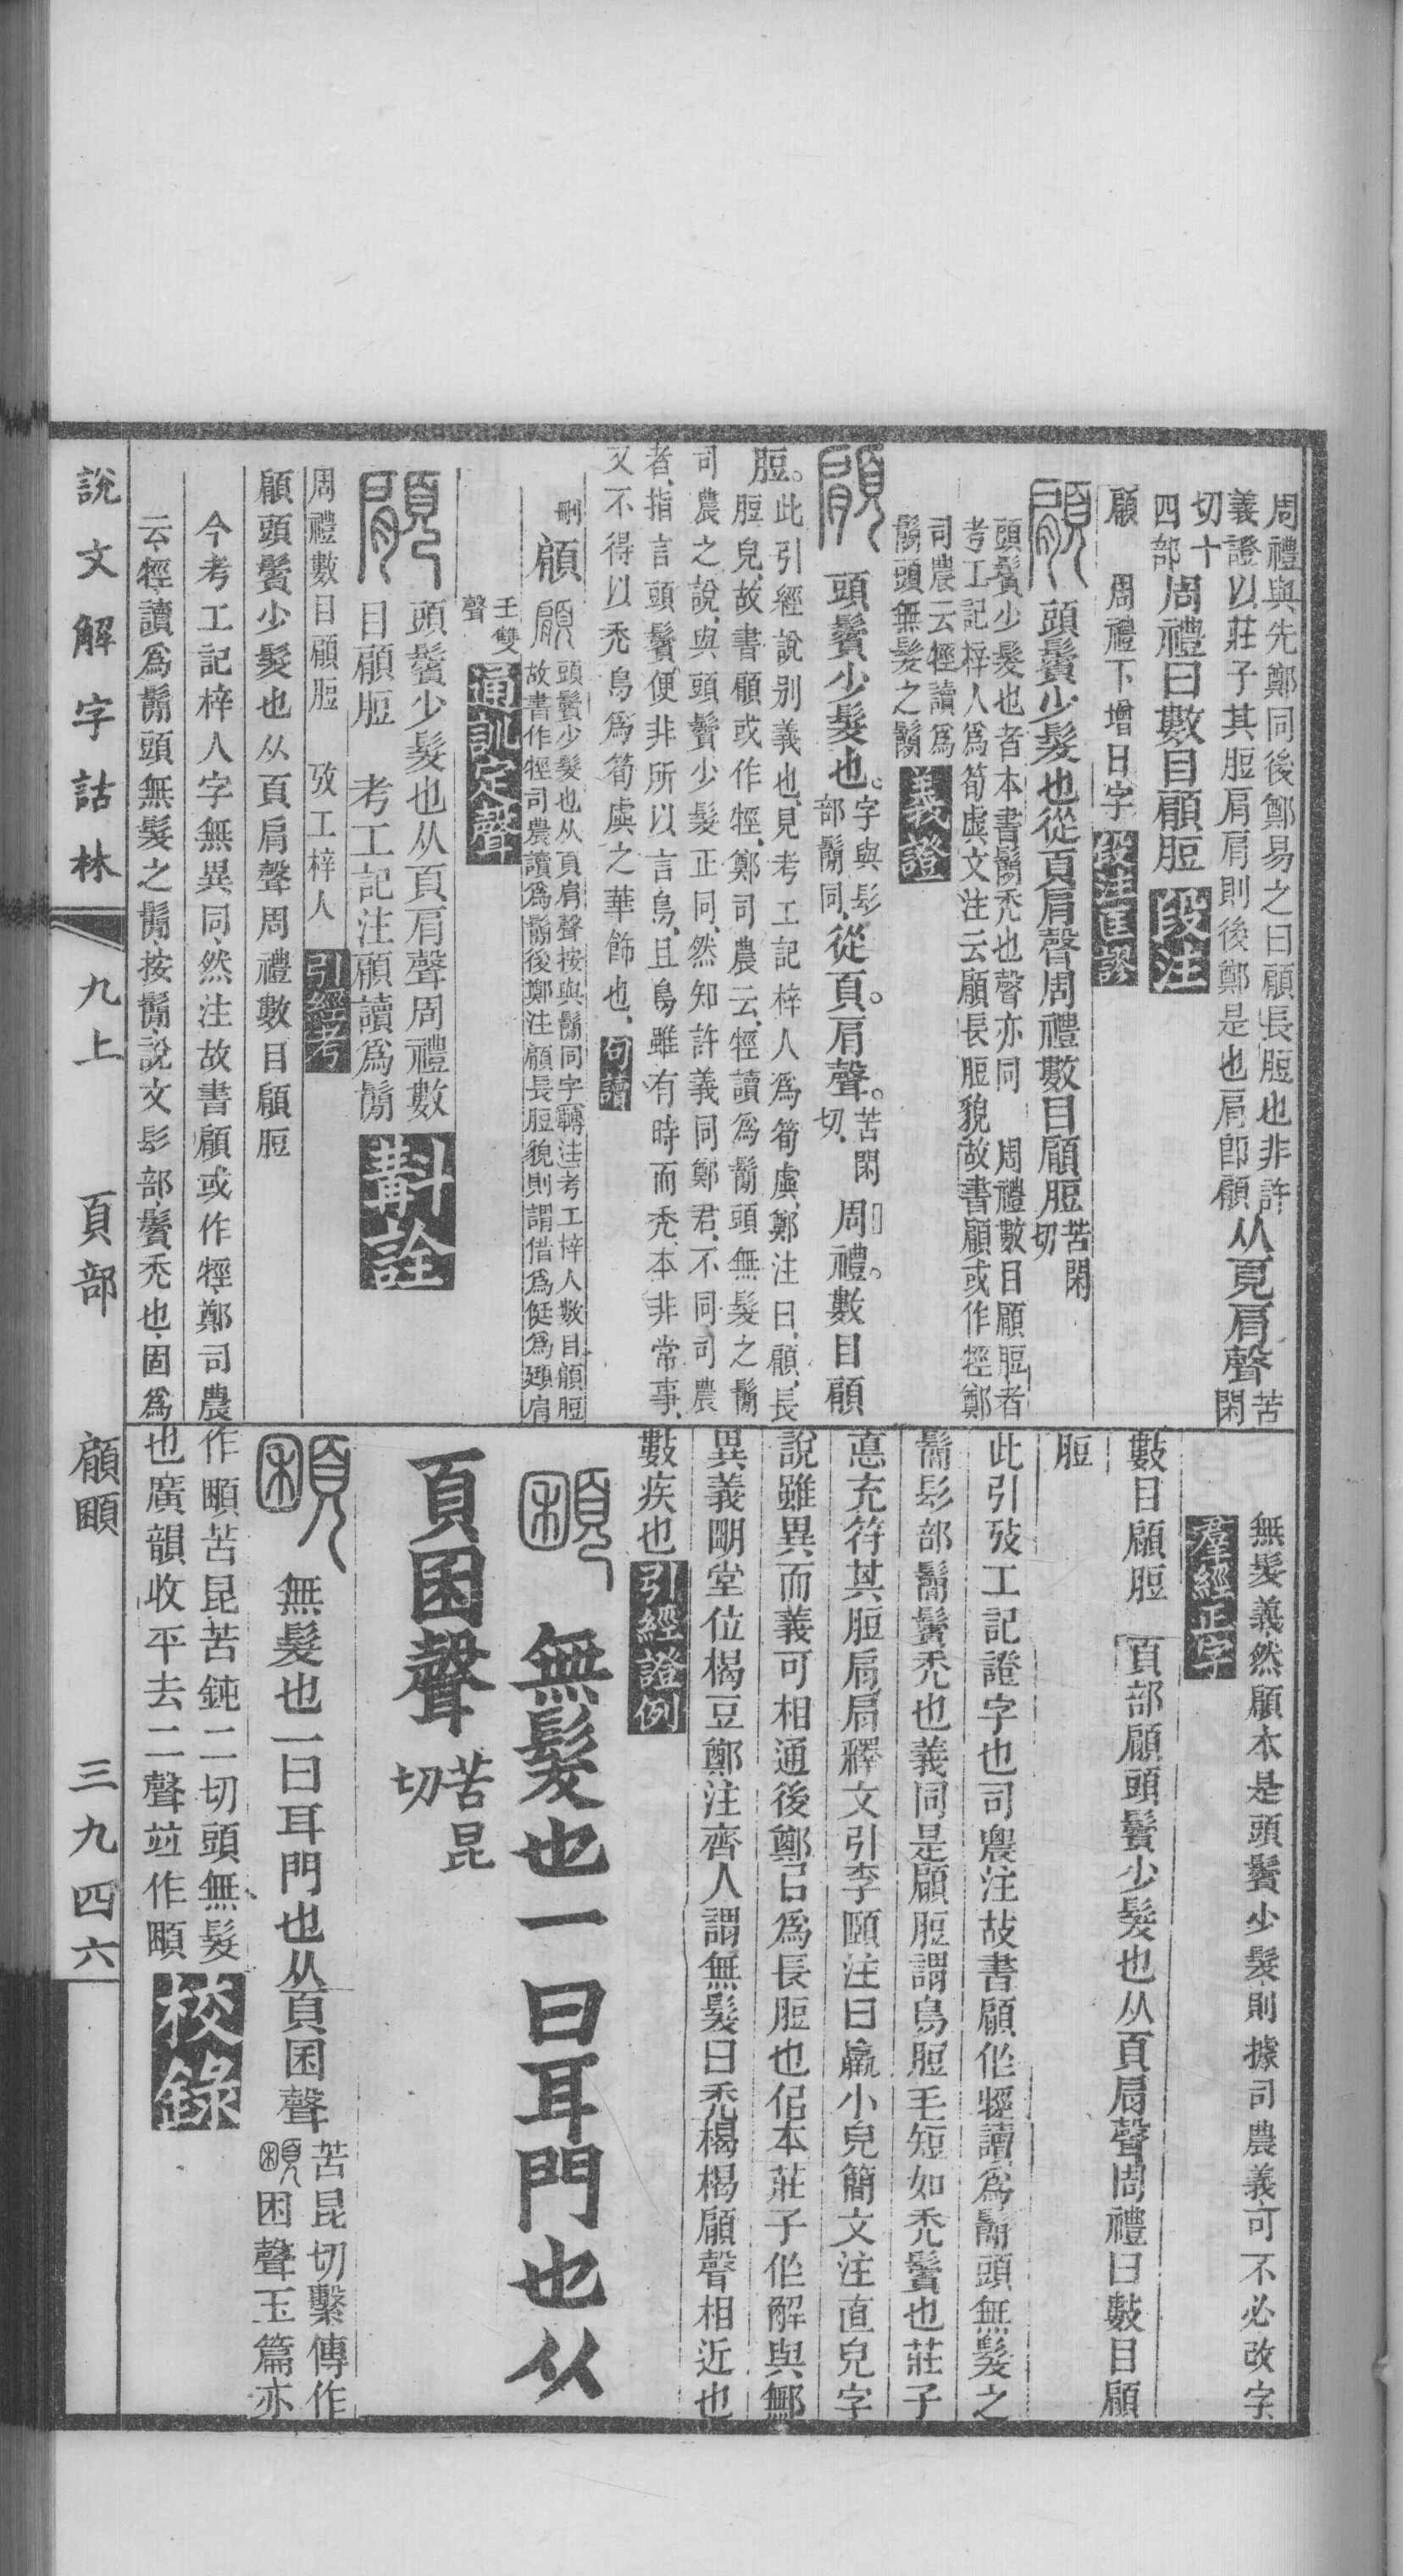 周禮與先鄭同後鄭易之曰顅長脰也非許
義證以莊子其脰肩肩則後鄭是也肩卽顅从頁肩聲苦閑
切十四部周禮曰數目顅脰段注
顅 周禮下增曰字段注匡謬
頭鬢少髮也從頁肩聲周禮數目顅脰苦閑切
頭鬢少髮也者本書鬜禿也聲亦同 周禮數目顅脰者
考工記梓人爲筍虡文注云顅長脰貌故書顅或作牼鄭
司農云牼讀爲
鬜頭無髮之鬜義證
頭鬢少髮也。字與髟部鬜同、從頁。肩聲。苦閑切、周禮。數目顅
脰。此引經說別義也、見考工記梓人爲筍虡、鄭注曰、顅、長
脰皃、故書顅或作牼、鄭司農云、牼讀爲鬜頭無髮之鬜
司農之說、與頭鬢少髮正同、然知許義同鄭君、不同司農
者、指言頭鬢、便非所以言鳥、且鳥雖有時而禿、本非常事、
又不得以禿鳥爲筍虡之華飾也、句讀
刪 顅 頭鬢少髮也从頁肩聲按與鬜同字轉注考工梓人數目顅脰
故書作牼司農讀爲鬜後鄭注顅長脰貌則謂借爲侹爲頲肩
壬雙聲 通訓定聲
頭鬢少髮也从頁肩聲周禮數
目顅脰 考工記注顅讀爲鬜斠詮
周禮數目顅脰 攷工梓人 引經考
顅頭鬢少髮也从頁肩聲周禮數目顅脰
今考工記梓人字無異同、然注故書顅或作牼、鄭司農
云、牼、讀爲鬜頭無髮之鬜、按鬜、說文髟部、鬢禿也、固爲
無髮義然顅本是頭鬢少髮、則據司農義、可不必改字、
羣經正字
數目顅脰 頁部顅頭鬢少髮也从頁肩聲周禮曰數目顅
脰
此引攷工記證字也司農注故書顅作牼讀爲鬜頭無髮之
鬜髟部鬜鬢禿也義同是顅脰謂鳥脰毛短如禿鬢也莊子
悳充符其脰肩肩釋文引李頤注曰羸小皃簡文注直皃字
說雖異而義可相通後鄭㠯爲長脰也佀本莊子作解與鄦
異義朙堂位楬豆鄭注齊人謂無髮曰禿楬楬顅聲相近也
數疾也引經證例
無髮也一曰耳門也从
頁困聲苦昆切
無髮也一曰耳門也从頁困聲苦昆切繫傳作
困聲玉篇亦
作顐苦昆苦鈍二切頭無髮
也廣韻收平去二聲竝作顐校錄
說文解字詁林 九上 頁部 顅顐 三九四六